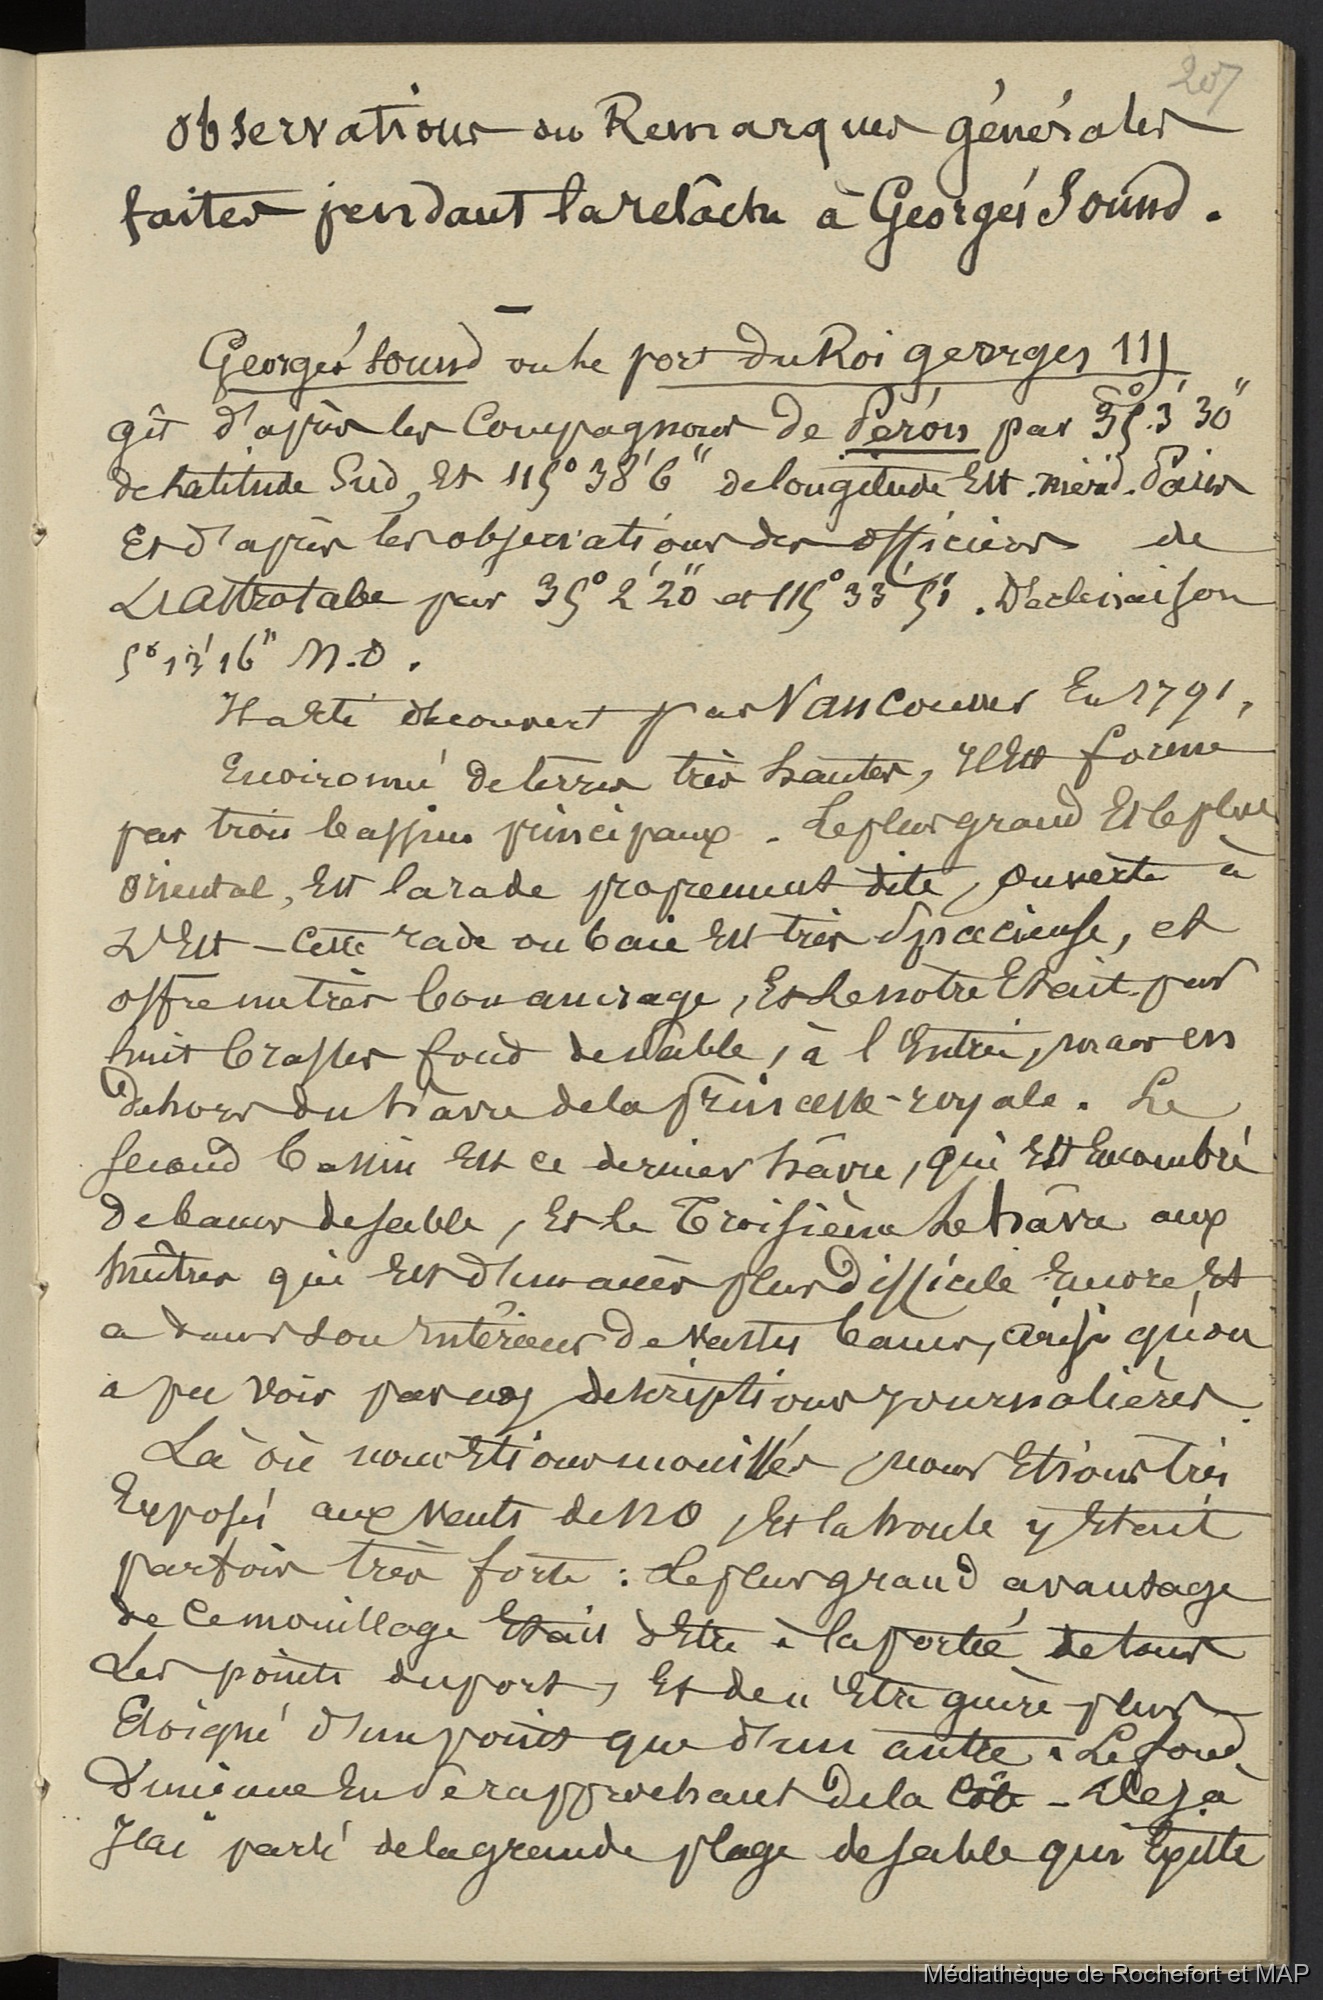 207
Observations ou Remarques générales
faites pendant la relâche à Georges Sound.
Georges Sound ou le port du Roi georges III
gît d'après les Compagnons de Péron par 35° 3' 30"
de Latitude Sud, et 115° 38' 6" de longitude Est. mérid. Paris
Et d'après les observations des officiers de
L'Astrolabe par 35° 2' 20" et 115° 33' 51". Déclinaison
5° 13' 16" N.O.
Il a Eté découvert par Vancouver En 1791,
Environné de terres très hautes, Il Est formé
par trois bassins principaux. Le plus grand Et le plus
oriental, Est la rade proprement dite, Ouverte à
L'Est - Cette rade ou baie Est très Spacieuse, et
offre un très bon ancrage, Et Le notre Etait par
huit brasses fond de sable, à l'Entrée, mais en
dehors du hâvre de la princesse-royale. Le
second bassin Est ce dernier hâvre, qui Est Encombré
de bancs de sable, Et Le Troisième Le hâvre aux
huîtres qui Est d'un accès plus difficile Encore, Et
a dans son Intérieur de Vastes bancs, ainsi qu'on
a pu voir par nos descriptions journalières.
Là où nous Etions mouillés, nous Etions très
Exposés aux Vents de NO, Et la houle y Etait
parfois très forte : Le plus grand avantage
de ce mouillage Etait d'Etre à la portée de tous
Les points du port, Et de n'Etre guère plus
Eloigné d'un point que d'un autre. Le fond
Diminue En se rapprochant de la côte - Déjà
J'ai parlé de la grande plage de sable qui Existe
Médiathèque de Rochefort et MAP